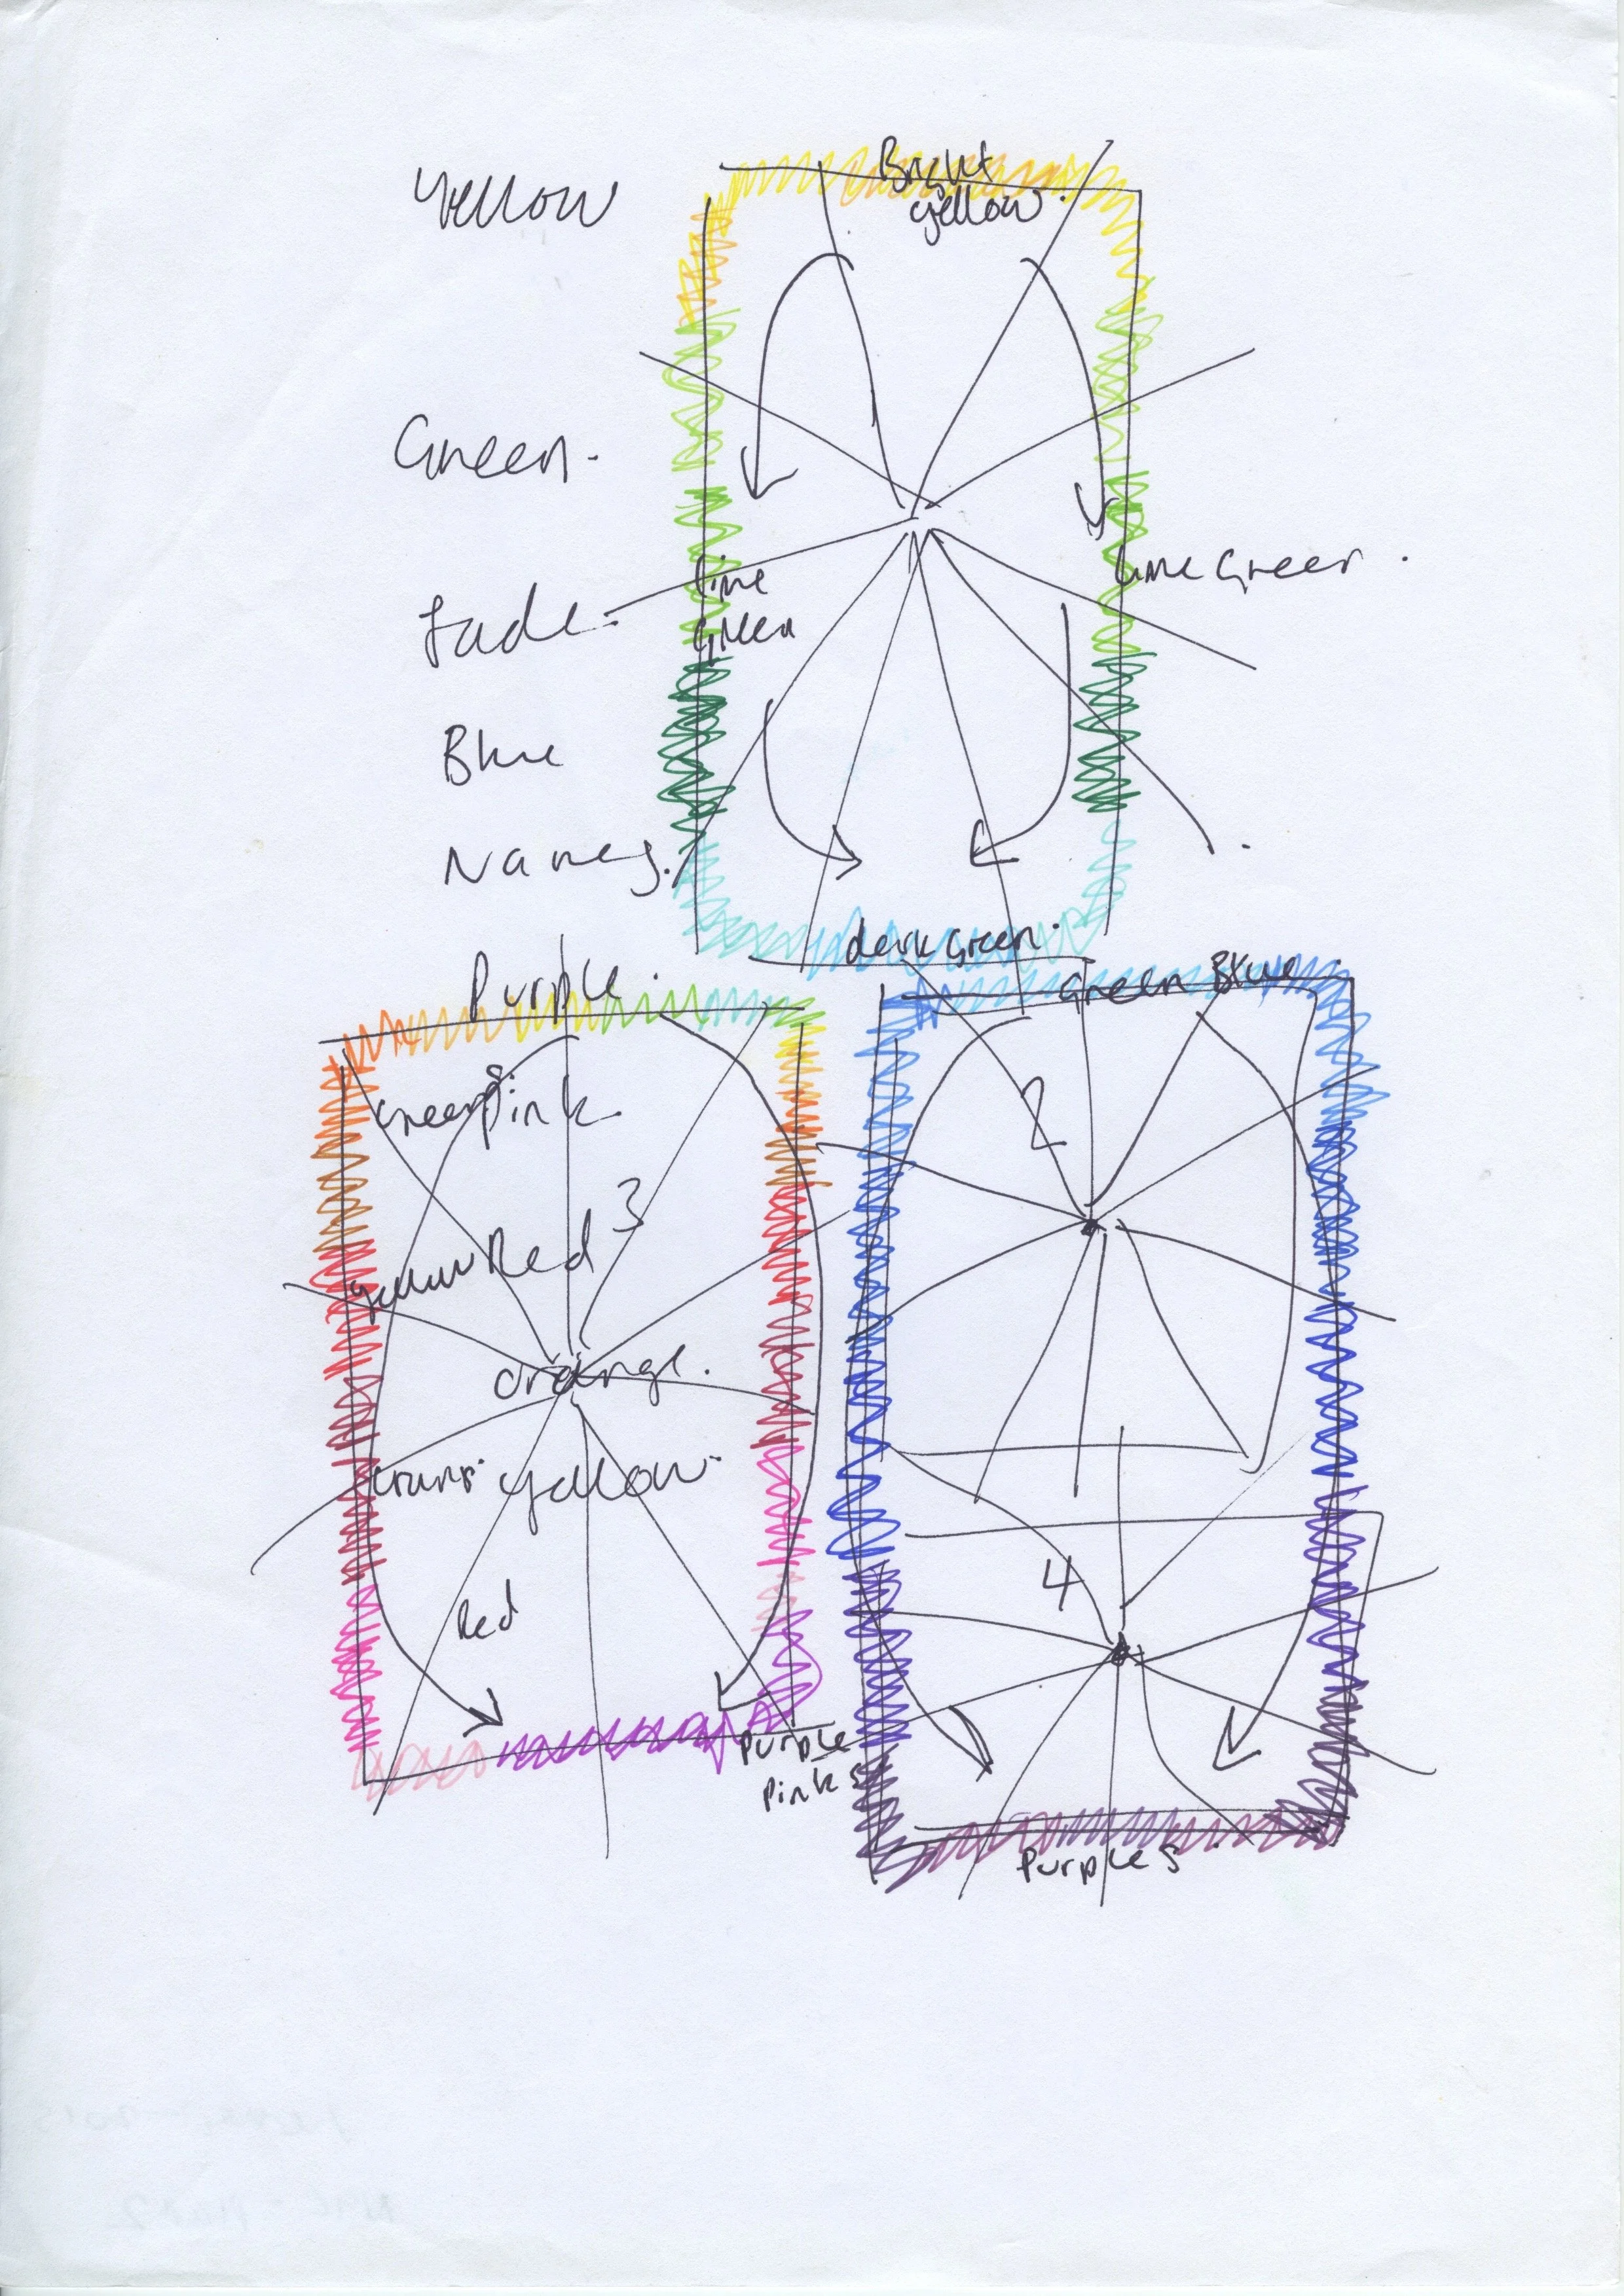 Yellow
Bright
yellow.
Green.
lime
Green
lime Green.
Jade.
Blue
Names.
dark Green.
Purple.
Green Blue
Greens
Pink.
2
yellow
Red
3
orange.
yellow.
Red
4
Purple
Pinks
Purples